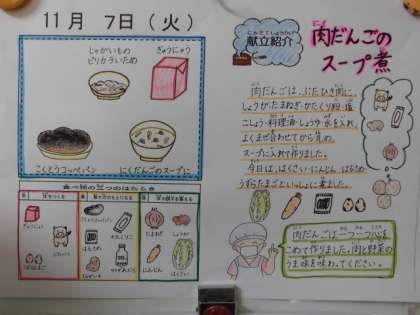 11月 7日(火)
じゃがいもの
ピリカラいため
ぎゅうにゅう
こくとうコッペパン
にくだんごのスープに
食べ物の三つのはたらき
ぎゅうにゅう
たまねぎ
しょうが
にんじん
はくさい
こんだてしょうかい
献立紹介
肉だんごの
スープ煮
肉だんごは、ぶたひき肉に、
しょうが、たまねぎ、かたくり粉、塩、
こしょう、料理酒、しょうゆ、水を入れ、
よくまぜ合わせてから丸め、
スープに入れて作りました。
今日は、はくさい、にんじん、はるさめ、
うずらたまごといっしょに煮ました。
肉だんごは一つ一つ心を
こめて作りました。肉と野菜の
うま味を味わってください。